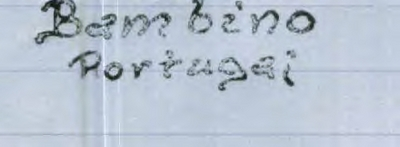 Bambino
Portugai